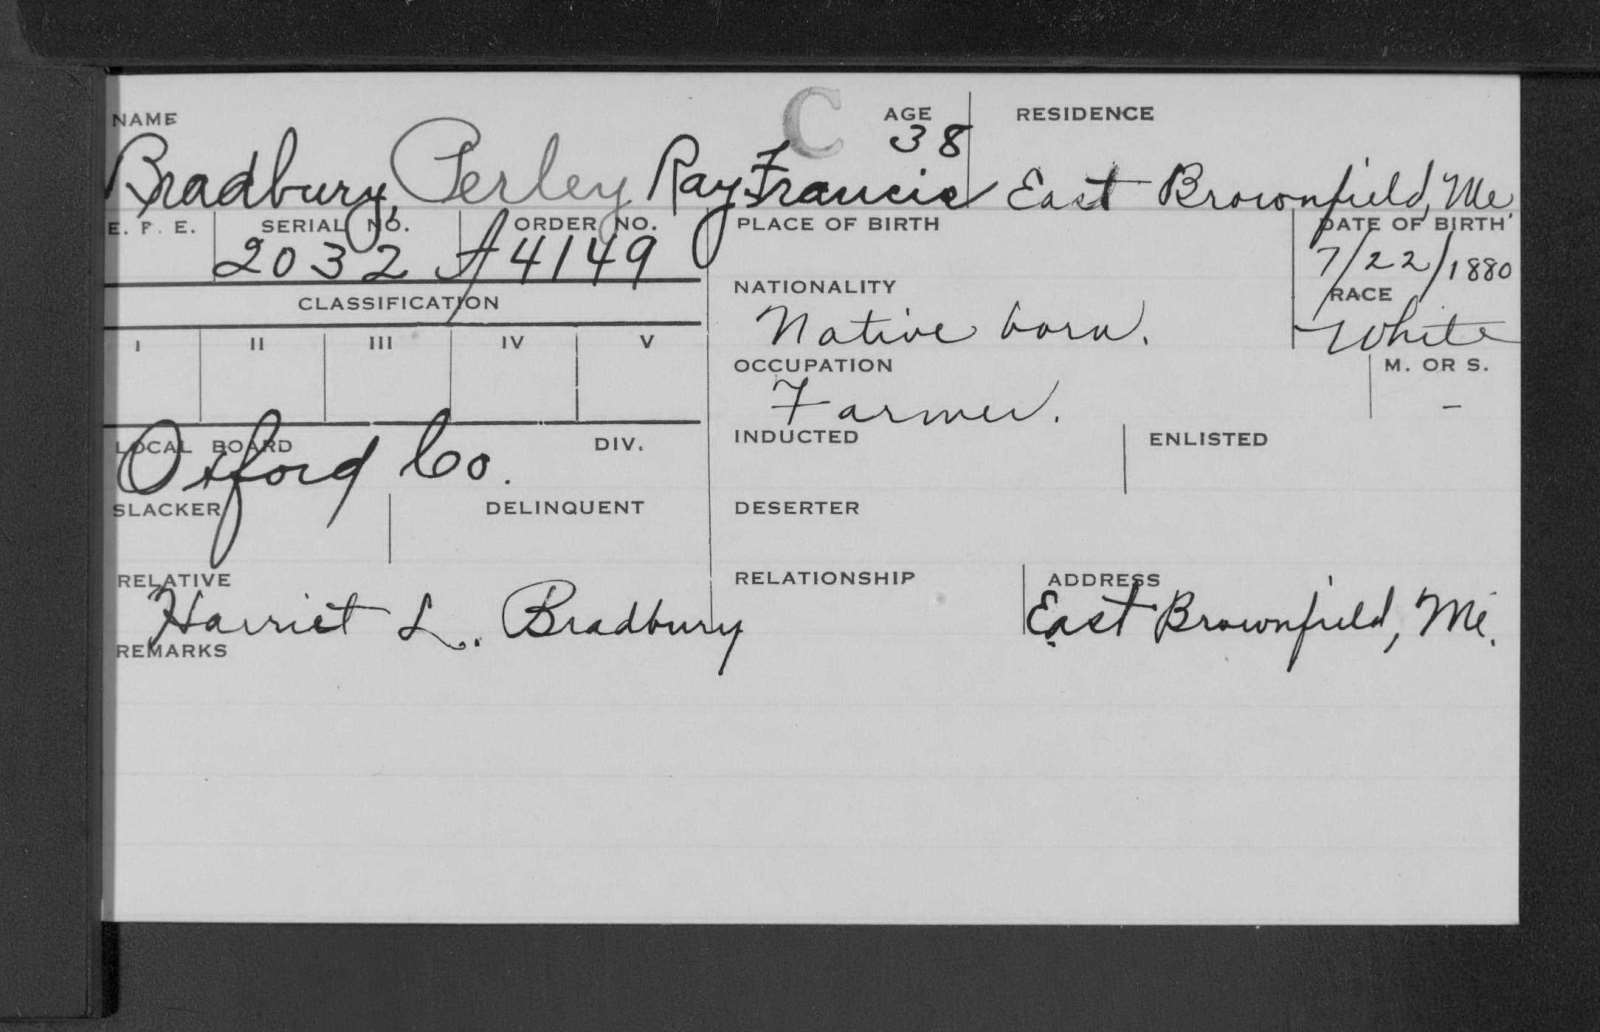 C
NAME AGE RESIDENCE
Bradbury, Perley Ray Francis 38 East Brownfield, Me
E. F. E. SERIAL NO. ORDER NO. PLACE OF BIRTH DATE OF BIRTH
2032 A4149 7/22/1880
CLASSIFICATION NATIONALITY RACE
Native born. White
I II III IV V OCCUPATION M. OR S.
Farmer. –
LOCAL BOARD DIV. INDUCTED ENLISTED
Oxford Co.
SLACKER DELINQUENT DESERTER
RELATIVE RELATIONSHIP ADDRESS
Harriet L. Bradbury East Brownfield, Me.
REMARKS